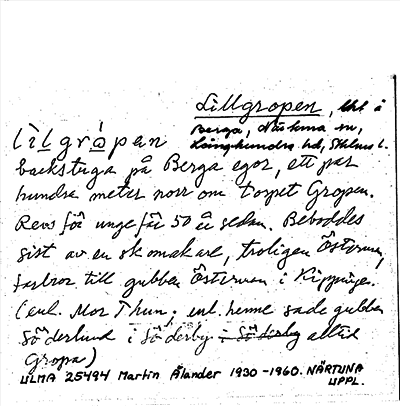 Lillgropen, bbl i
Berga, Närtuna sn,
Långhundra hd, Sthlms l.
lìlgròpan
backstuga på Berga egor, ett par
hundra meter norr om torpet Gropen.
Revs för ungefär 50 år sedan. Beboddes
sist av en skomakare, troligen Österman,
farbror till gubben Österman i Kippinge.
(enl. Mor Thun; enl. henne sade gubben
Söderlund i Söderby i Söderby alltid
Gropa)
ULMA 25494 Martin Ålander 1930-1960. NÄRTUNA
UPPL.